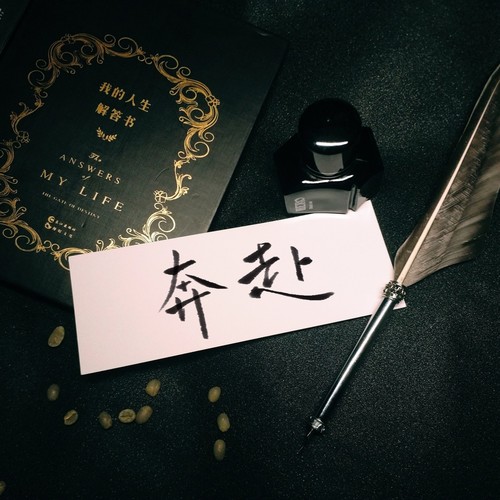 我的人生
解答书
The
ANSWERS
of
MY LIFE
THE GATE OF DESTINY
HERO
奔赴